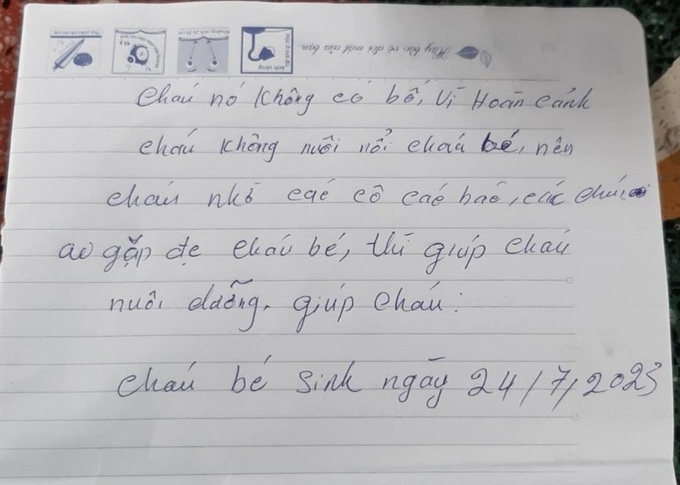 Hãy bảo vệ đôi mắt của bạn
Cháu nó không có bố, Vì Hoàn cảnh
cháu không nuôi nổi cháu bé, nên
cháu nhờ các cô các bác, các chú
ai gặp đc cháu bé, thì giúp cháu
nuôi dưỡng. giúp cháu:
cháu bé sinh ngày 24/7/2023